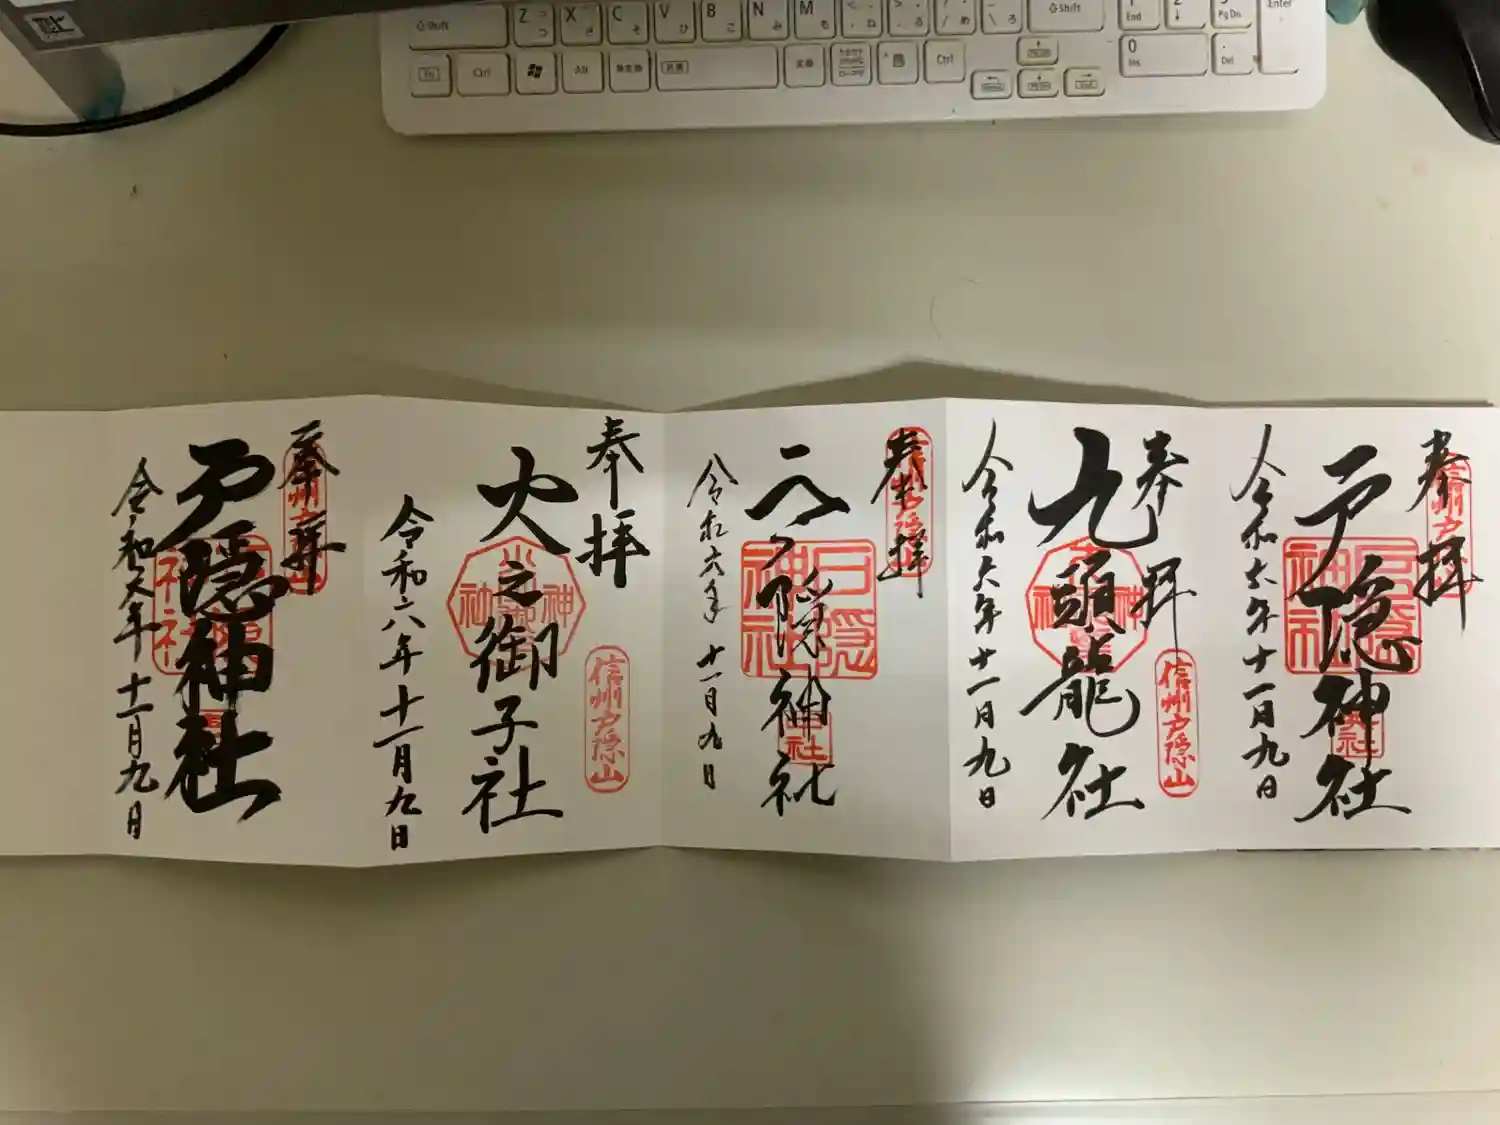 奉拝
信州戸隠山
戸隠神社
戸隠神社
奥社
令和六年十一月九日
奉拝
信州戸隠山
九頭龍社
令和六年十一月九日
奉拝
信州戸隠山
戸隠神社
戸隠神社
中社
令和六年十一月九日
奉拝
信州戸隠山
火之御子社
令和六年十一月九日
奉拝
信州戸隠山
戸隠神社
令和六年十一月九日
Shift
Z
X
C
V
B
N
M
Shift
End
Pg Dn
Enter
Ctrl
Alt
無変換
変換
Ctrl
0
Ins
Del